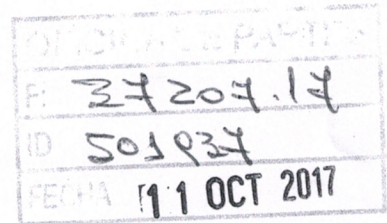 OFICINA DE PARTES
F: 37207.17
ID 501937
FECHA 11 OCT 2017